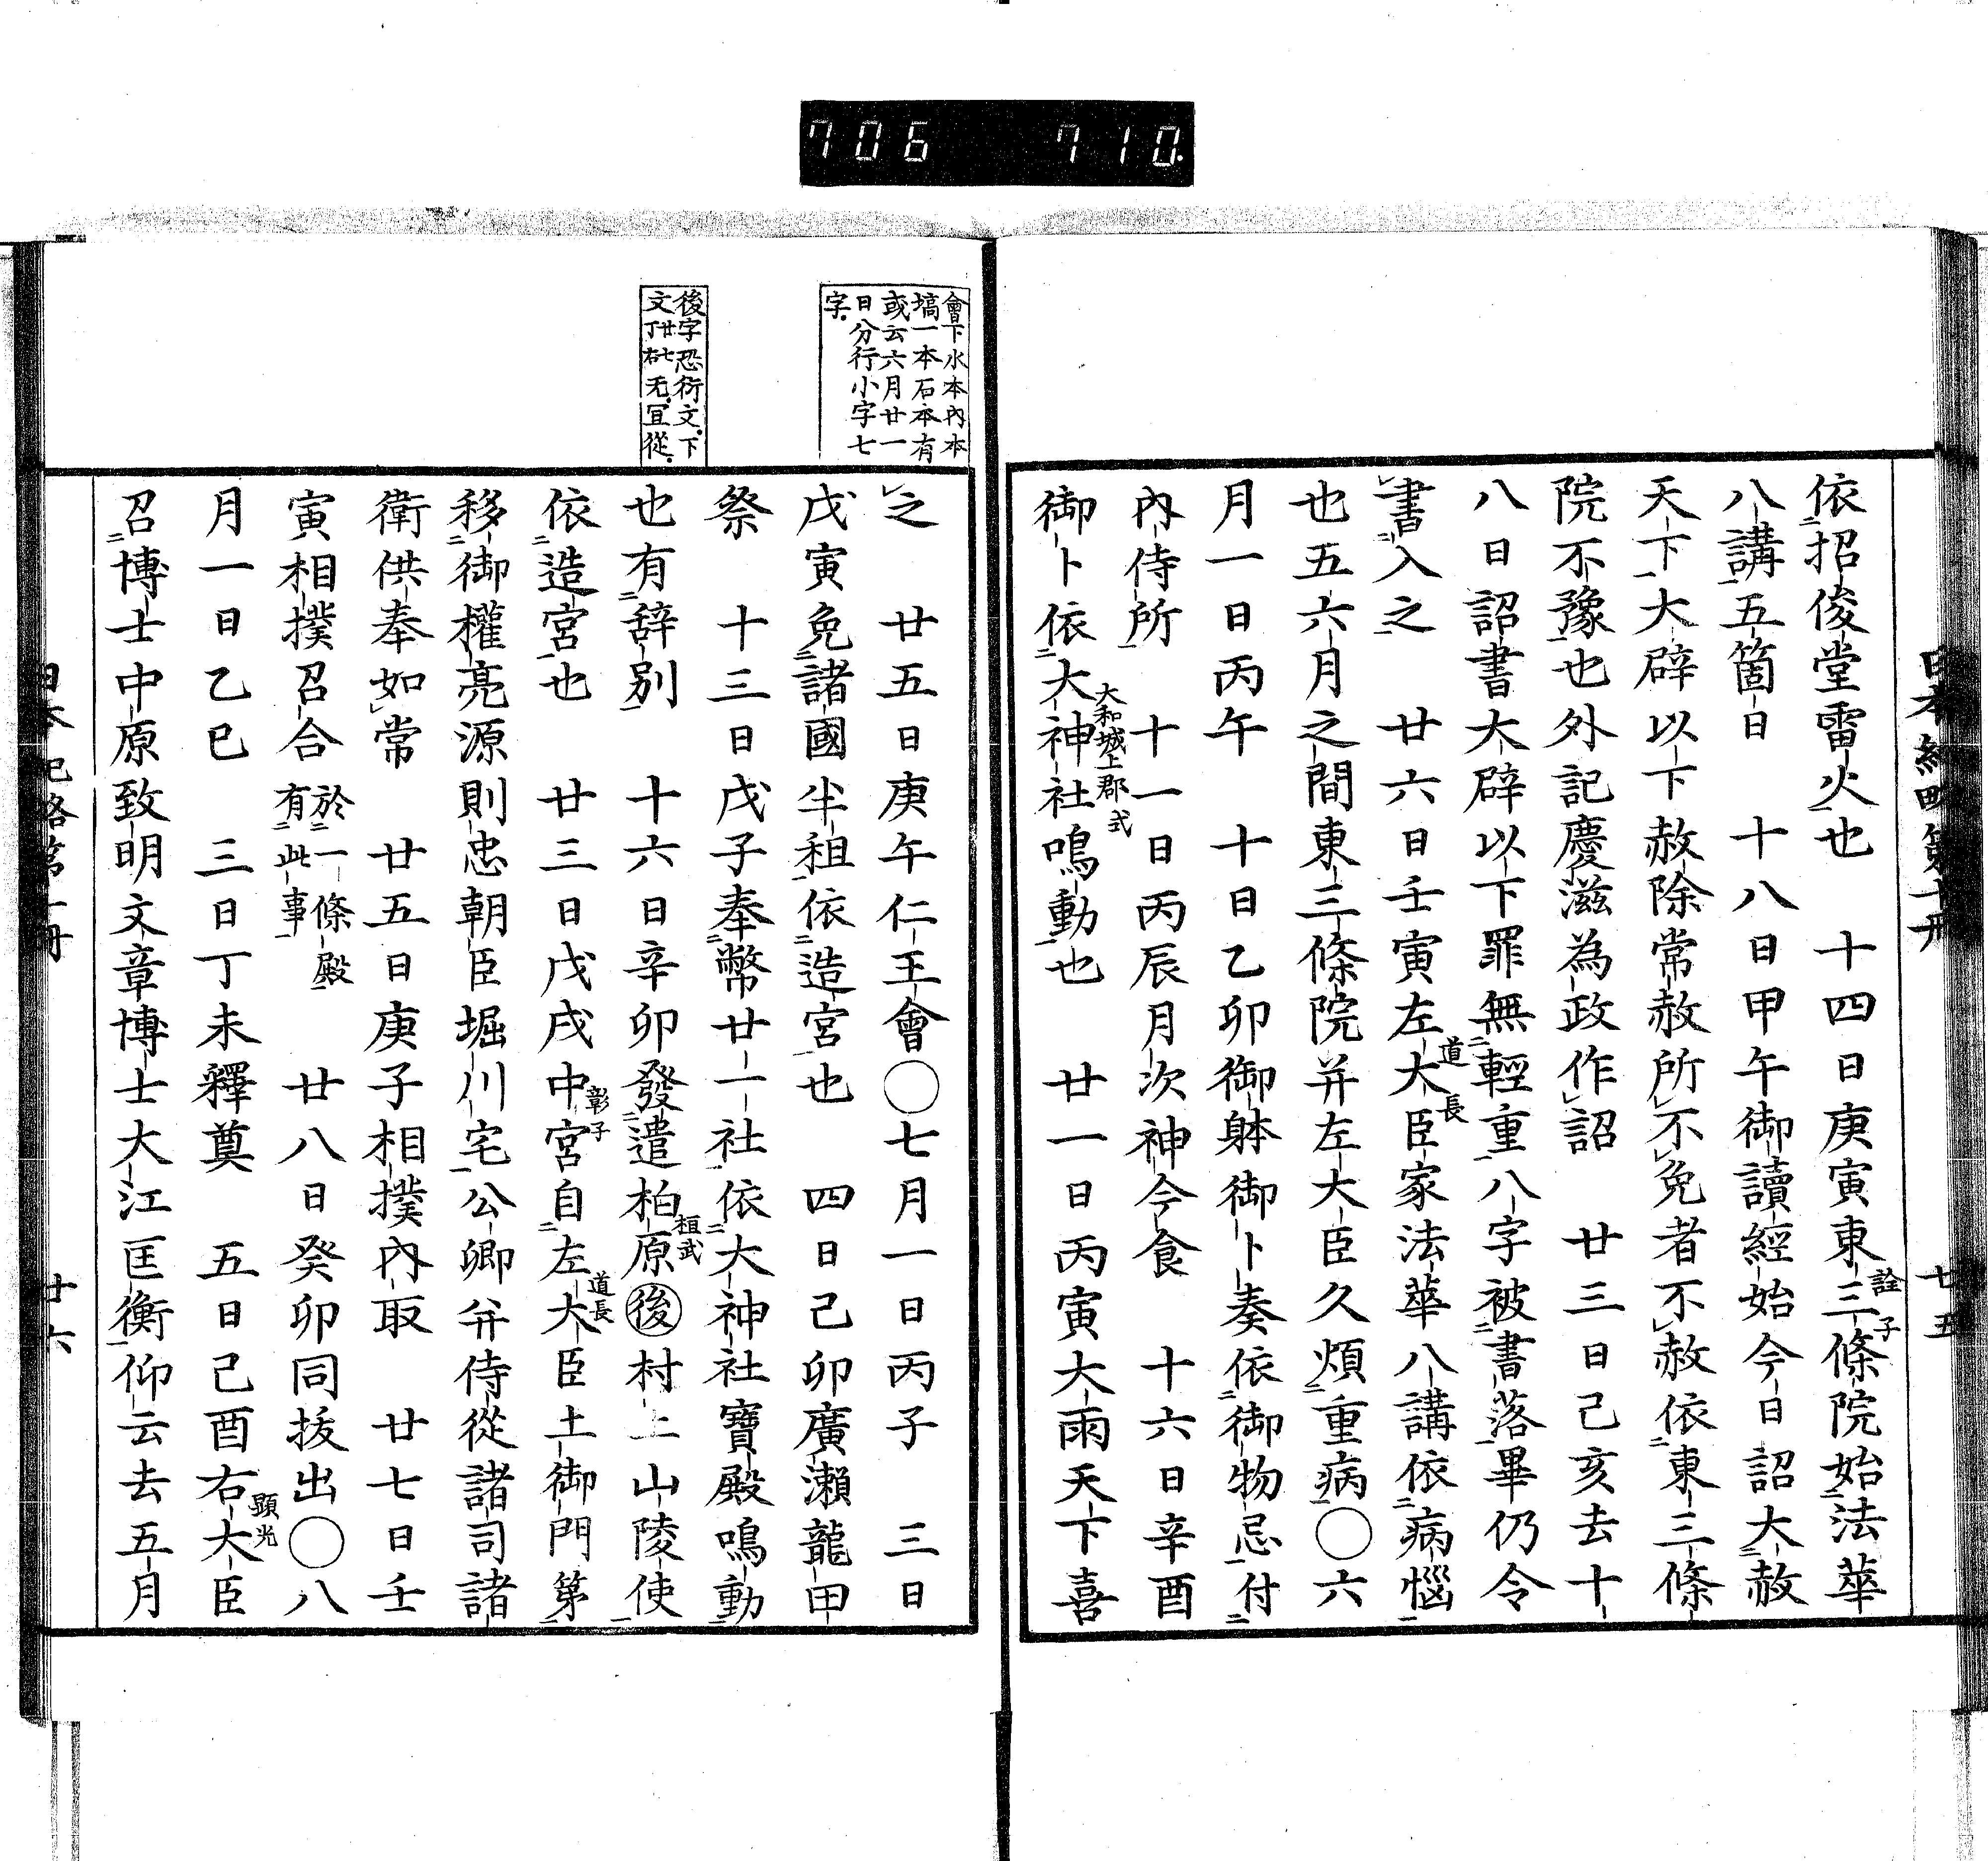 706 710.
日本紀略第十冊 廿五
依招俊堂雷火也 十四日庚寅東三條院始法華
詮子
八講五箇日 十八日甲午御讀經始今日詔大赦
天下大辟以下赦除常赦所不免者不赦依東三條
院不豫也外記慶滋為政作詔 廿三日己亥去十
八日詔書大辟以下罪無輕重八字被書落畢仍令
書入之 廿六日壬寅左大臣家法華八講依病惱
道長
也五六月之間東三條院并左大臣久煩重病〇六
月一日丙午 十日乙卯御躰御卜奏依御物忌付
內侍所 十一日丙辰月次神今食 十六日辛酉
御卜依大神社鳴動也 廿一日丙寅大雨天下喜
大和城上郡式
會下水本內本
塙一本石本有
或云六月廿一
日分行小字七
字.
後字恐衍文.下
文廿七丁右无.宜從.
之 廿五日庚午仁王會〇七月一日丙子 三日
戊寅免諸國半租依造宮也 四日己卯廣瀨龍田
祭 十三日戊子奉幣廿一社依大神社寶殿鳴動
也有辞別 十六日辛卯發遣柏原後村上山陵使
桓武
依造宮也 廿三日戊戌中宮自左大臣土御門第
彰子 道長
移御權亮源則忠朝臣堀川宅公卿并侍從諸司諸
衛供奉如常 廿五日庚子相撲內取 廿七日壬
寅相撲召合於一條殿有此事 廿八日癸卯同拔出〇八
月一日乙巳 三日丁未釋奠 五日己酉右大臣
顯光
召博士中原致明文章博士大江匡衡仰云去五月
日本紀略第十冊 廿六